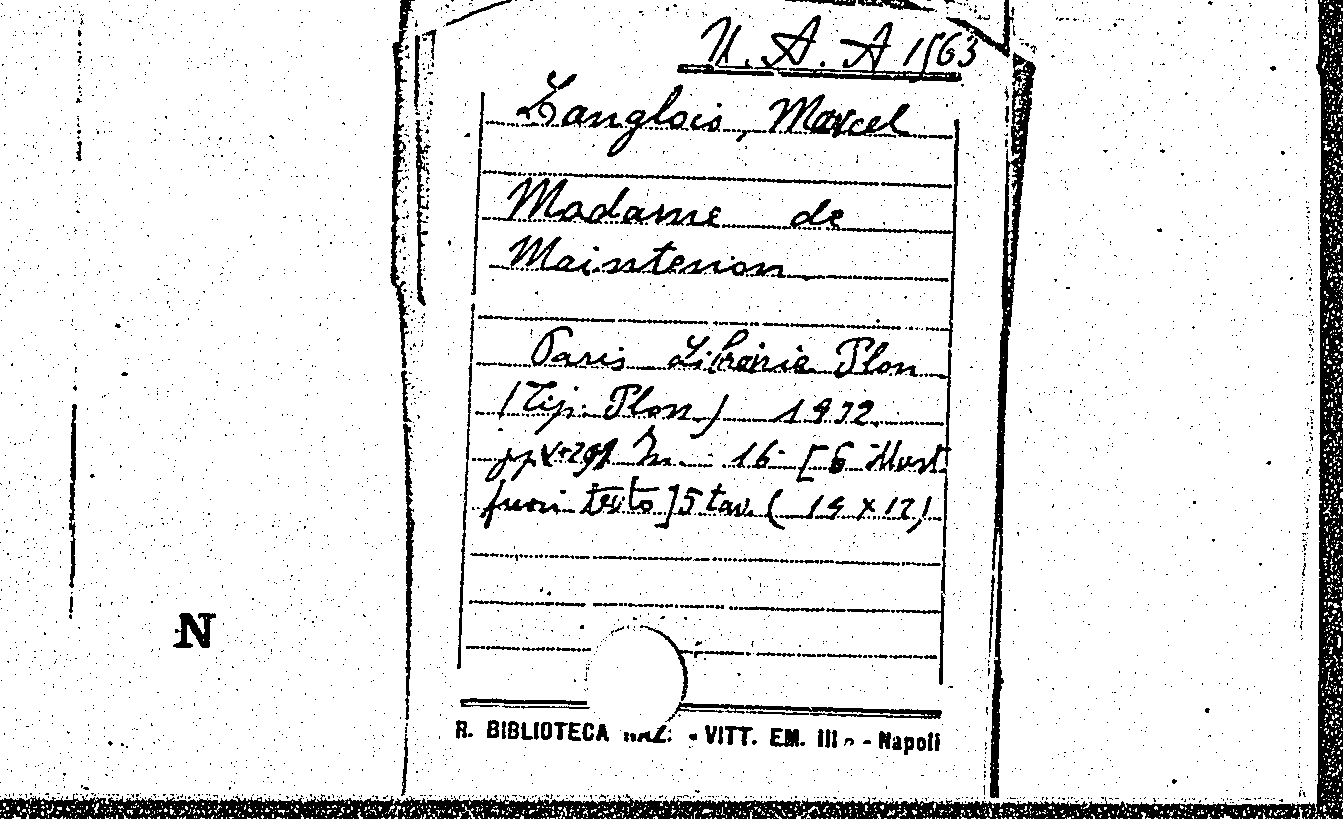 U. A. A 1563
Langlois, Marcel
Madame de
Maintenon
Paris Librairie Plon
(Tip. Plon) 1932
pp. in 16· [6 illust
fuori testo] 5 tav. (19 X 12)
N
R. BIBLIOTECA NAZ. - VITT. EM. III - Napoli